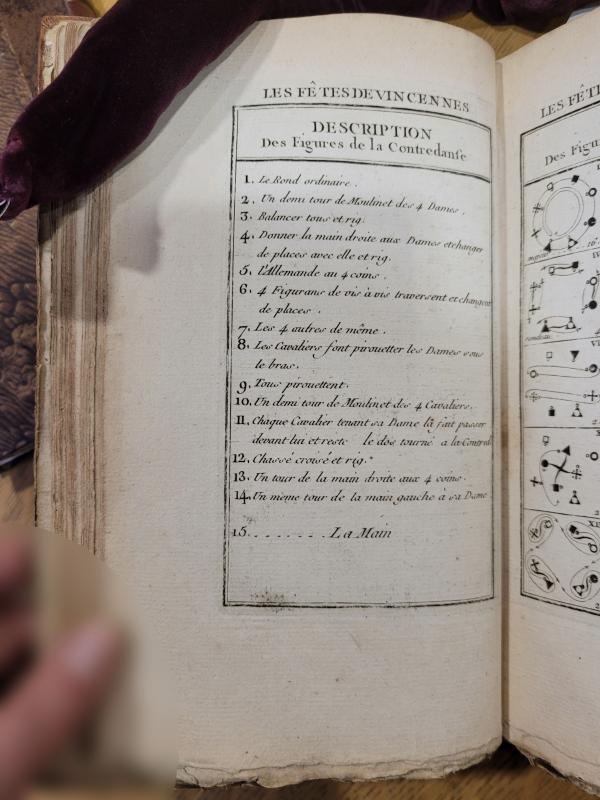 LES FÊTES DE VINCENNES
DESCRIPTION
Des Figures de la Contredanse
1. Le Rond ordinaire.
2. Un demi tour de Moulinet des 4 Dames.
3. Balancer tous et rig.
4. Donner la main droite aux Dames et changer
de places avec elle et rig.
5. l'Allemande au 4 coins.
6. 4 Figurans de vis à vis traversent et changent
de places.
7. Les 4 autres de même.
8. Les Cavaliers font pirouetter les Dames sous
le bras.
9. Tous pirouettent.
10. Un demi tour de Moulinet des 4 Cavaliers.
11. Chaque Cavalier tenant sa Dame la fait passer
devant lui et reste le dos tourné a la Contred
12. Chassé croisé et rig.
13. Un tour de la main droite aux 4 coins.
14. Un même tour de la main gauche à sa Dame
15. . . . . . . . . La Main
LES FÊT
Des Figu